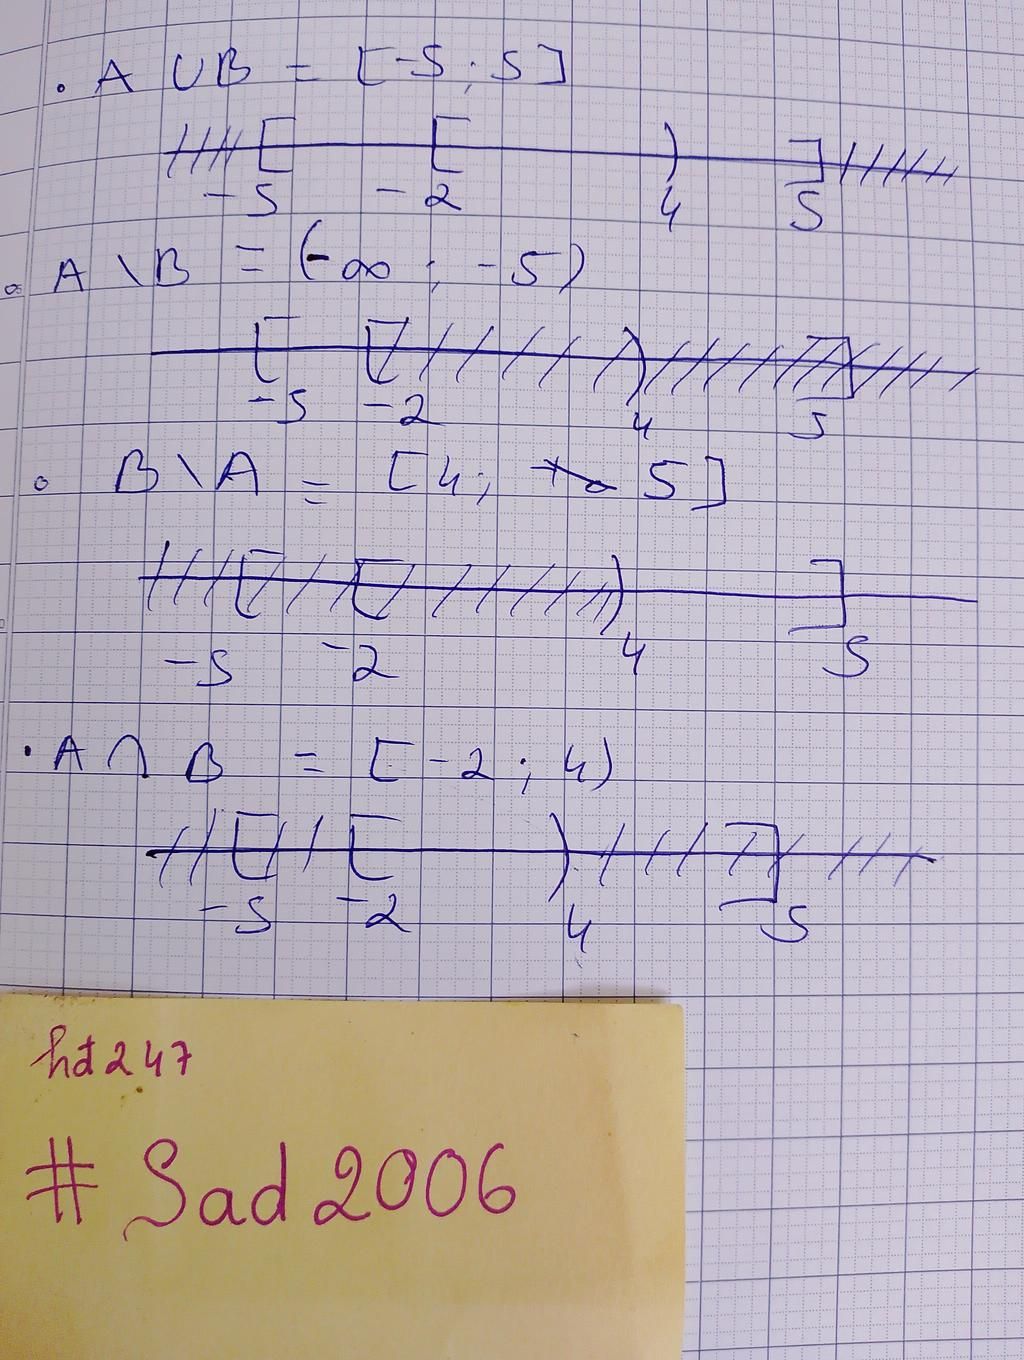 . A ∪ B = [-5; 5]
-5 -2 4 5
. A \ B = (-∞; -5)
-5 -2 4 5
. B \ A = [4; 5]
-5 -2 4 5
. A ∩ B = [-2; 4)
-5 -2 4 5
hd247
# Sad2006